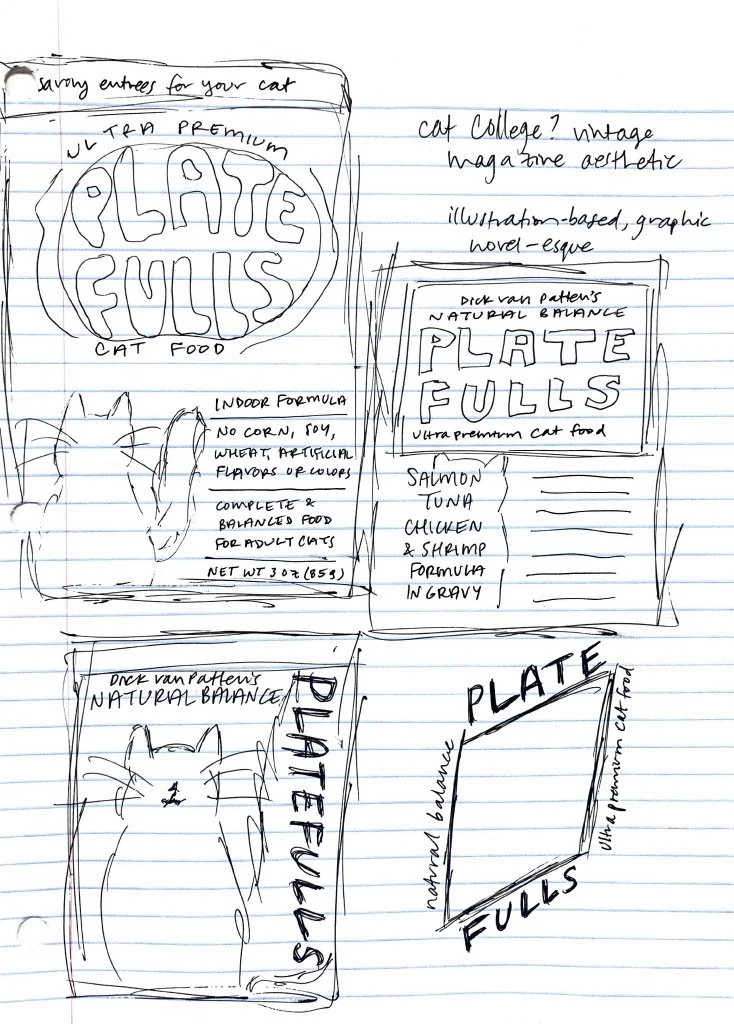 savory entrees for your cat
ULTRA PREMIUM
PLATE
FULLS
CAT FOOD
INDOOR FORMULA
NO CORN, SOY,
WHEAT, ARTIFICIAL
FLAVORS OR COLORS
COMPLETE &
BALANCED FOOD
FOR ADULT CATS
NET WT 3 OZ (85g)
cat College? vintage
magazine aesthetic
illustration-based, graphic
novel-esque
Dick van Patten's
NATURAL BALANCE
PLATE
FULLS
ultra premium cat food
SALMON
TUNA
CHICKEN
& SHRIMP
FORMULA
IN GRAVY
Dick van Patten's
NATURAL BALANCE
PLATEFULLS
PLATE
natural balance
ultra premium cat food
FULLS